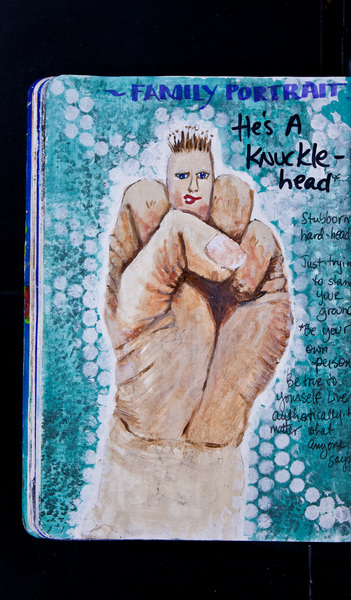 ~ FAMILY PORTRAIT
He's A
Knuckle-
head*
Stubborn
hard-head
Just tryin
to stan
your
groun
*Be your
own
person
Be true to
yourself. Live
authentically.
matter what
anyone
says